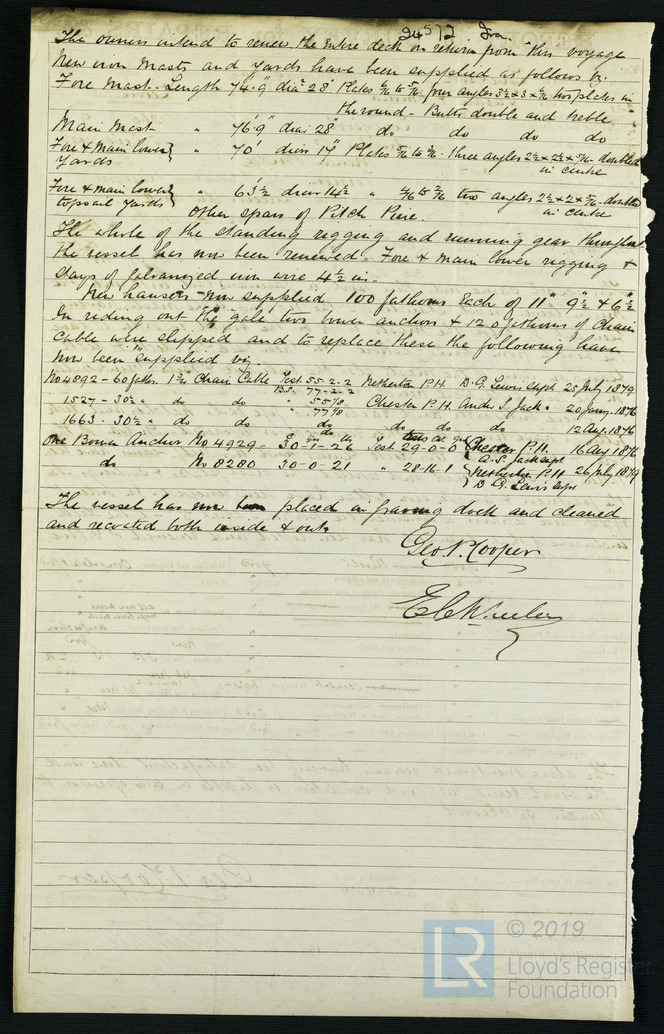 24572 Iro
The owners intend to renew the entire deck on return from this voyage
New iron Masts and Yards have been supplied as follows viz.
Fore Mast. Length 74'.9" diar 28" Plates 6/16 to 7/16 four angles 3½ x 3 x 6/16 two plates in
the round - Butts double and treble
Main Mast " 76'9" diar 28" do do do do
Fore & Main lower } " 70' diar 17" Plates 5/16 to 6/16 - three angles 2½ x 2½ x 5/16 - doubled
Yards in centre
Fore & main lower } " 63½ diar 14½ " two angles 2½ x 2 x 5/16 - doubled
topsail yards in centre
Other spars of Pitch Pine.
The whole of the standing rigging and running gear throughout
the vessel has now been renewed. Fore & Main lower rigging &
stays of galvanized iron wire 4½ in.
New hausers now supplied 100 fathoms each of 11" 9½ & 6½
In riding out the gale two bower anchors & 120 fathoms of Chain
Cable were slipped and to replace these the following have
now been supplied viz.
No 4892 - 60 faths. 1¾ Chain Cable Test 55-2-2 Netherton P.H. D.G. Lewis Supt 25 July 1879
B.S. 77-2-2
1527 - 30½ " do do " 55 1/8 Chester P.H. And. S. Jack " 20 Jany. 1876
" 77 1/8
1663 - 30½ " do do do do do do 12 Aug. 1876
One Bower Anchor No 4929 - 30-1-26 Test 29-0-0 { Chester P.H. 16 Aug 1876
A.S. Jack Supt
do No 8280 30-0-21 " 28-16-1 { Netherton P.H. 26 July 1879
D.G. Lewis Supt
The vessel has now been placed in graving dock and cleaned
and recoated both inside & out.
Geo. P. Cooper
LR
© 2019
Lloyd's Register
Foundation